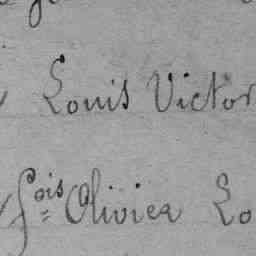 Louis Victor
f=ois Olivier Lo